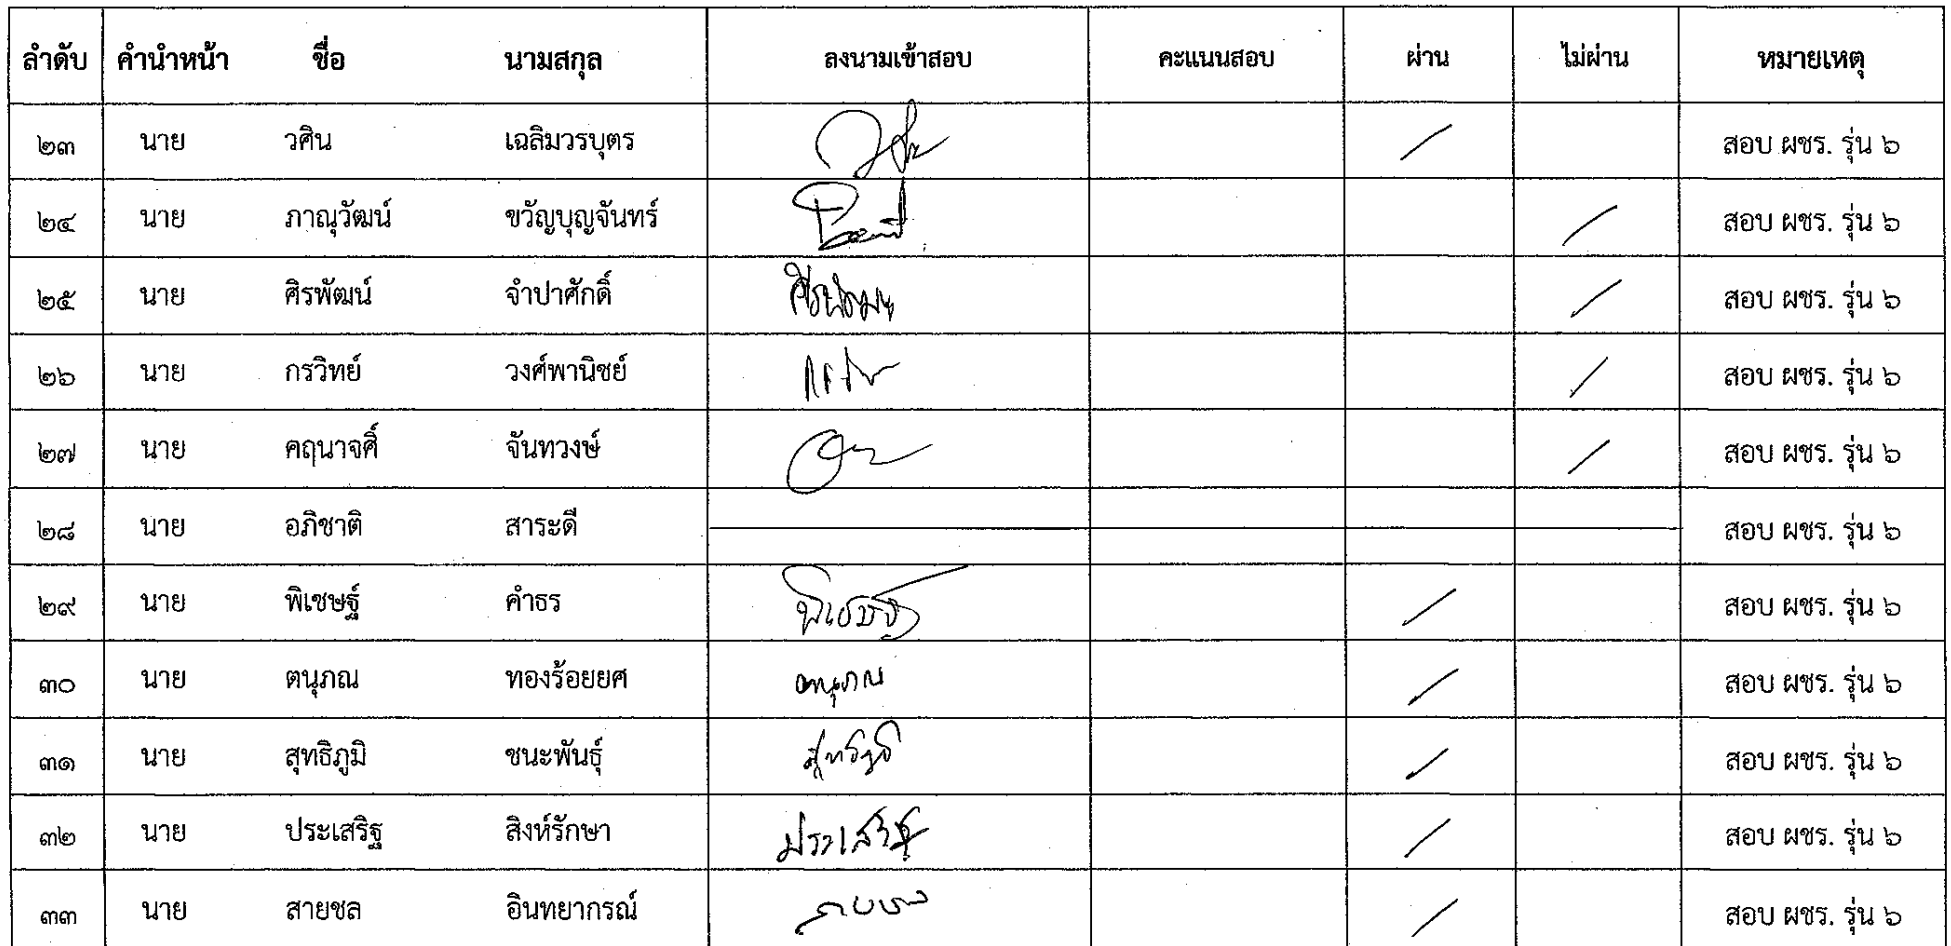 ลำดับ คำนำหน้า ชื่อ นามสกุล ลงนามเข้าสอบ คะแนนสอบ ผ่าน ไม่ผ่าน หมายเหตุ
๒๓ นาย วศิน เฉลิมวรบุตร สอบ ผชร. รุ่น ๖
๒๔ นาย ภาณุวัฒน์ ขวัญบุญจันทร์ สอบ ผชร. รุ่น ๖
๒๕ นาย ศิรพัฒน์ จำปาศักดิ์ สอบ ผชร. รุ่น ๖
๒๖ นาย กรวิทย์ วงศ์พานิชย์ สอบ ผชร. รุ่น ๖
๒๗ นาย คฤนาจศิ์ จันทวงษ์ สอบ ผชร. รุ่น ๖
๒๘ นาย อภิชาติ สาระดี สอบ ผชร. รุ่น ๖
๒๙ นาย พิเชษฐ์ คำธร พิเชษฐ์ สอบ ผชร. รุ่น ๖
๓๐ นาย ตนุภณ ทองร้อยยศ ตนุภณ สอบ ผชร. รุ่น ๖
๓๑ นาย สุทธิภูมิ ชนะพันธุ์ สอบ ผชร. รุ่น ๖
๓๒ นาย ประเสริฐ สิงห์รักษา ประเสริฐ สอบ ผชร. รุ่น ๖
๓๓ นาย สายชล อินทยากรณ์ สอบ ผชร. รุ่น ๖